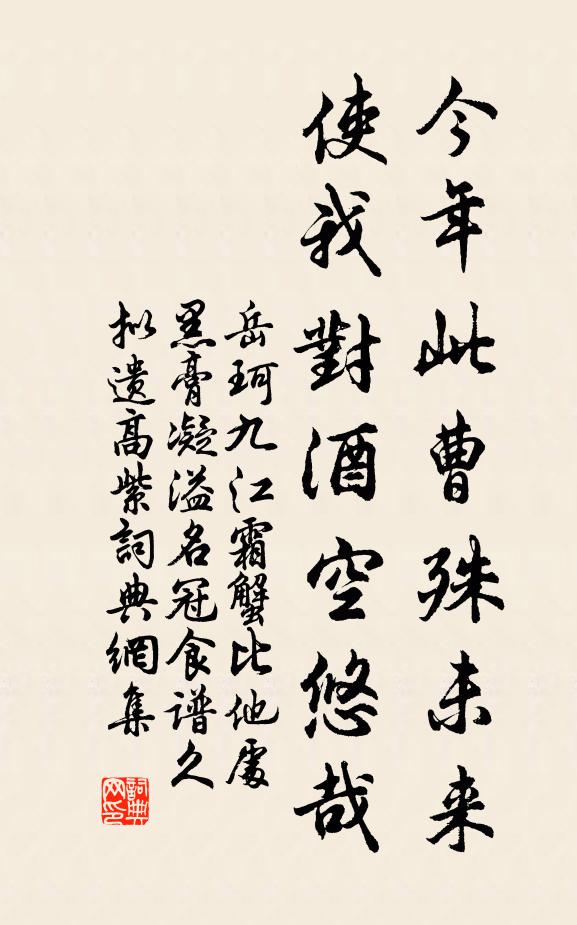 今年此曹殊未来
使我對酒空悠哉
岳珂九江霜蟹比他處
黑膏凝溢名冠食谱久
拟遗高紫詞典網集
詞典网印